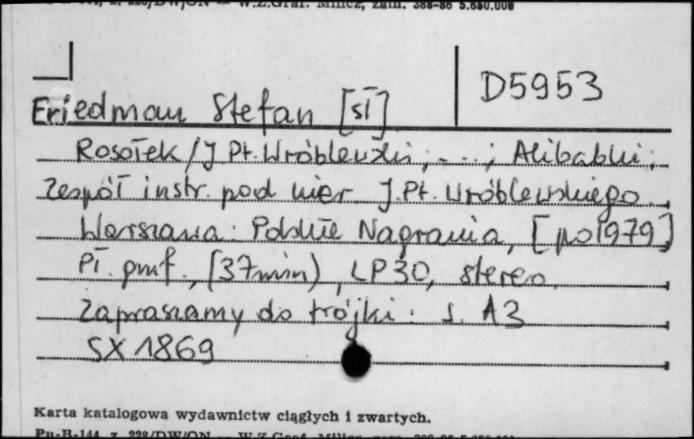 z. 228/DW/ON — W.Z.Graf. Milicz, zam. 388-86 5.850.000
D5953
Friedman Stefan [sł]
Rosołek / J. Pt. Wróblewski; ...; Alibabki;
Zespół instr. pod kier J. Pt. Wróblewskiego.
Warszawa: Polskie Nagrania, [po 1979]
Pł. gmf., (37min), LP30, stereo.
Zapraszamy do trójki. s. A3
SX 1869
Karta katalogowa wydawnictw ciągłych i zwartych.
Pu-B-144, z. 228/DW/ON — W.Z.Graf. Milicz